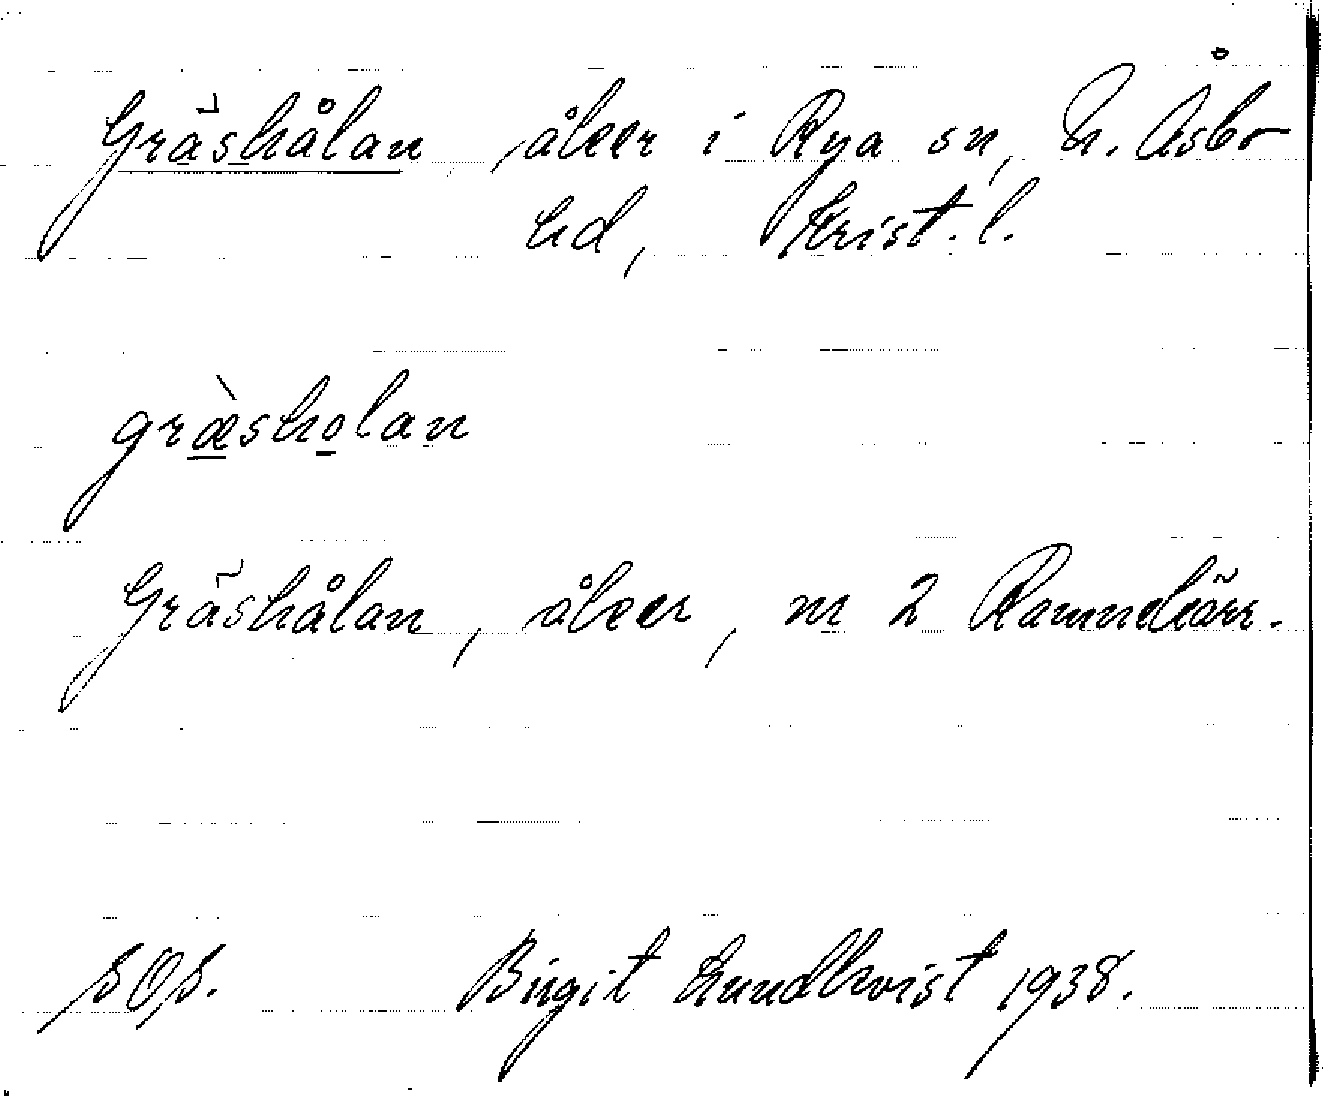 Gräshålan, åker i Rya sn, N. Åsbo
hd, Krist. l.
græ̀sholan
Gräshålan, åker, nr 2 Ramnekärr.
sOs. Birgit Lundkvist 1938.